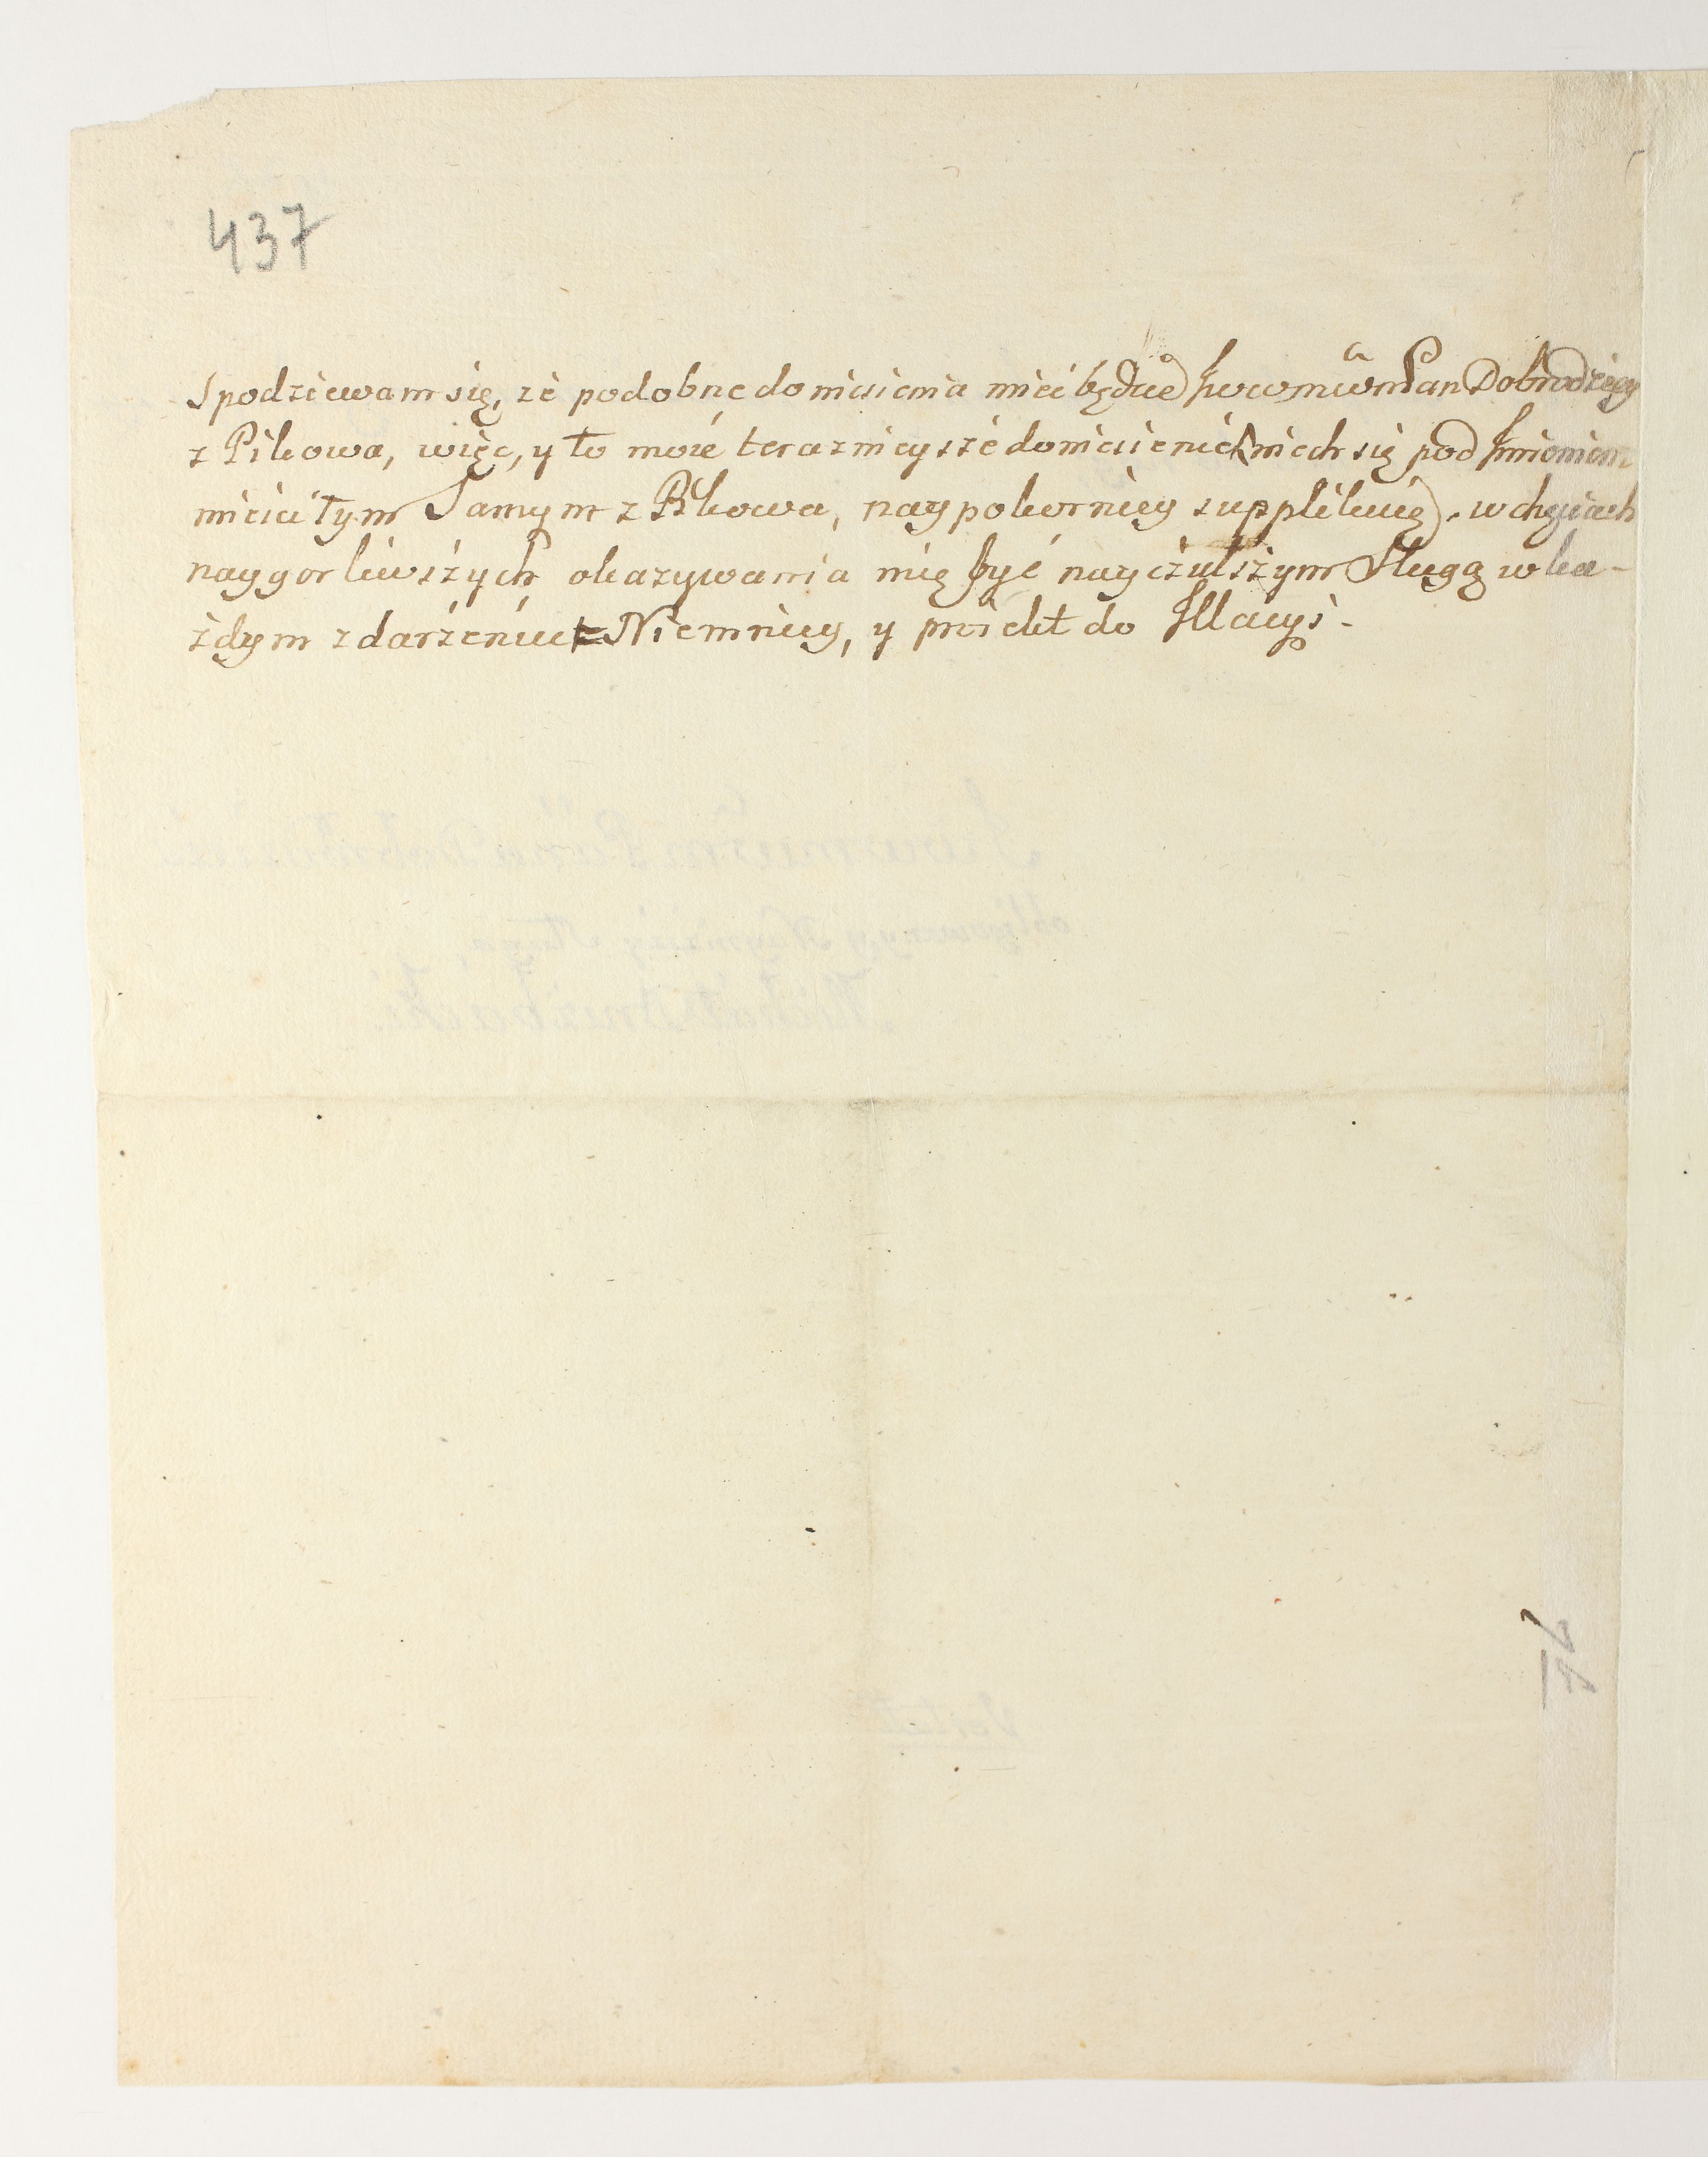 437
Spodziewam się, że podobne doniesienia mieć będzie JwWmMwm Pan Dobrodziey
z Pikowa, więc, y to moie teraznieysze doniesienie niech się pod Jmieniem
mieści tym Samym z Pikowa, naypokorniey supplikuię, w chęciach
naygorliwszych okazywania mię być nayczulszym Sługą w ka-
żdym zdarzeniu Niemniey, y proiekt do Illacyi.